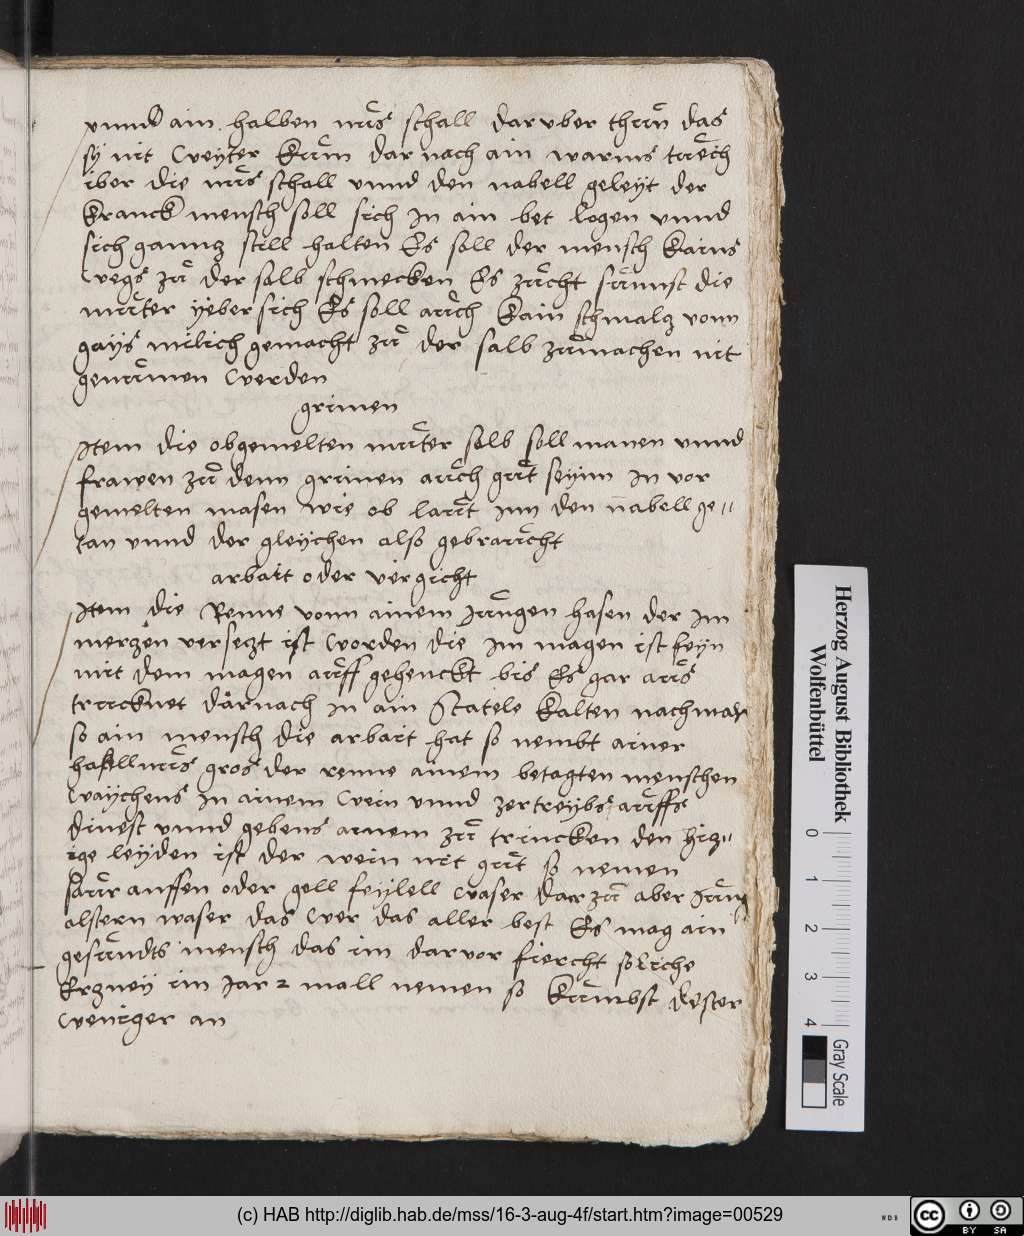 vnnd ain halben nus schall daruber thuen das
sy nit weyter kum dar nach ain warms tuech
iber die nus schall vnnd den nabell geleyt der
kranck mensch soll sich In ain bet legen vnnd
sich gannz still halten Es soll der mensch kains
wegs zu der salb schmecken Es zucht sunnst die
mueter yeber sich Es soll auch kain schmalz vonn
gays milich gemacht zu der salb zumachen nit
genumen werden
grimen
Item die obgemelten mueter salb soll manen vnnd
frawen zu denn grimen auch gut seynn In vor
gemelten masen wie ob laut Inn den nabell ge„
tan vnnd der gleychen also gebraucht
arbait oder vergicht
Item die Renne vonn ainem Jungen hasen der Im
merzen versezt ist worden die im magen ist seyn
mit dem magen auff gehenckt bis Es gar aus
trucknet darnach In ain Scatele kalten nachmar
so ain mensch die arbait hat so nembt ainer
hasellnus gros der renne ainem betagten menschen
waychens In ainem wein vnnd zertreybs auffs
dinest vnnd gebens ainem zu trincken den hiz„
ige leyden ist der wein nit gut so nemen
saur auffen oder gell feylell waser dar zu aber Jung
alstern waser das wer das aller best Es mag ain
gesundts mensch das im darvor fiercht soliche
Erzney im Jar 2 mall nemen so kumbst dester
weniger an
Herzog August Bibliothek
Wolfenbüttel
0 1 2 3 4
Gray Scale
(c) HAB http://diglib.hab.de/mss/16-3-aug-4f/start.htm?image=00529
WDB
cc BY SA